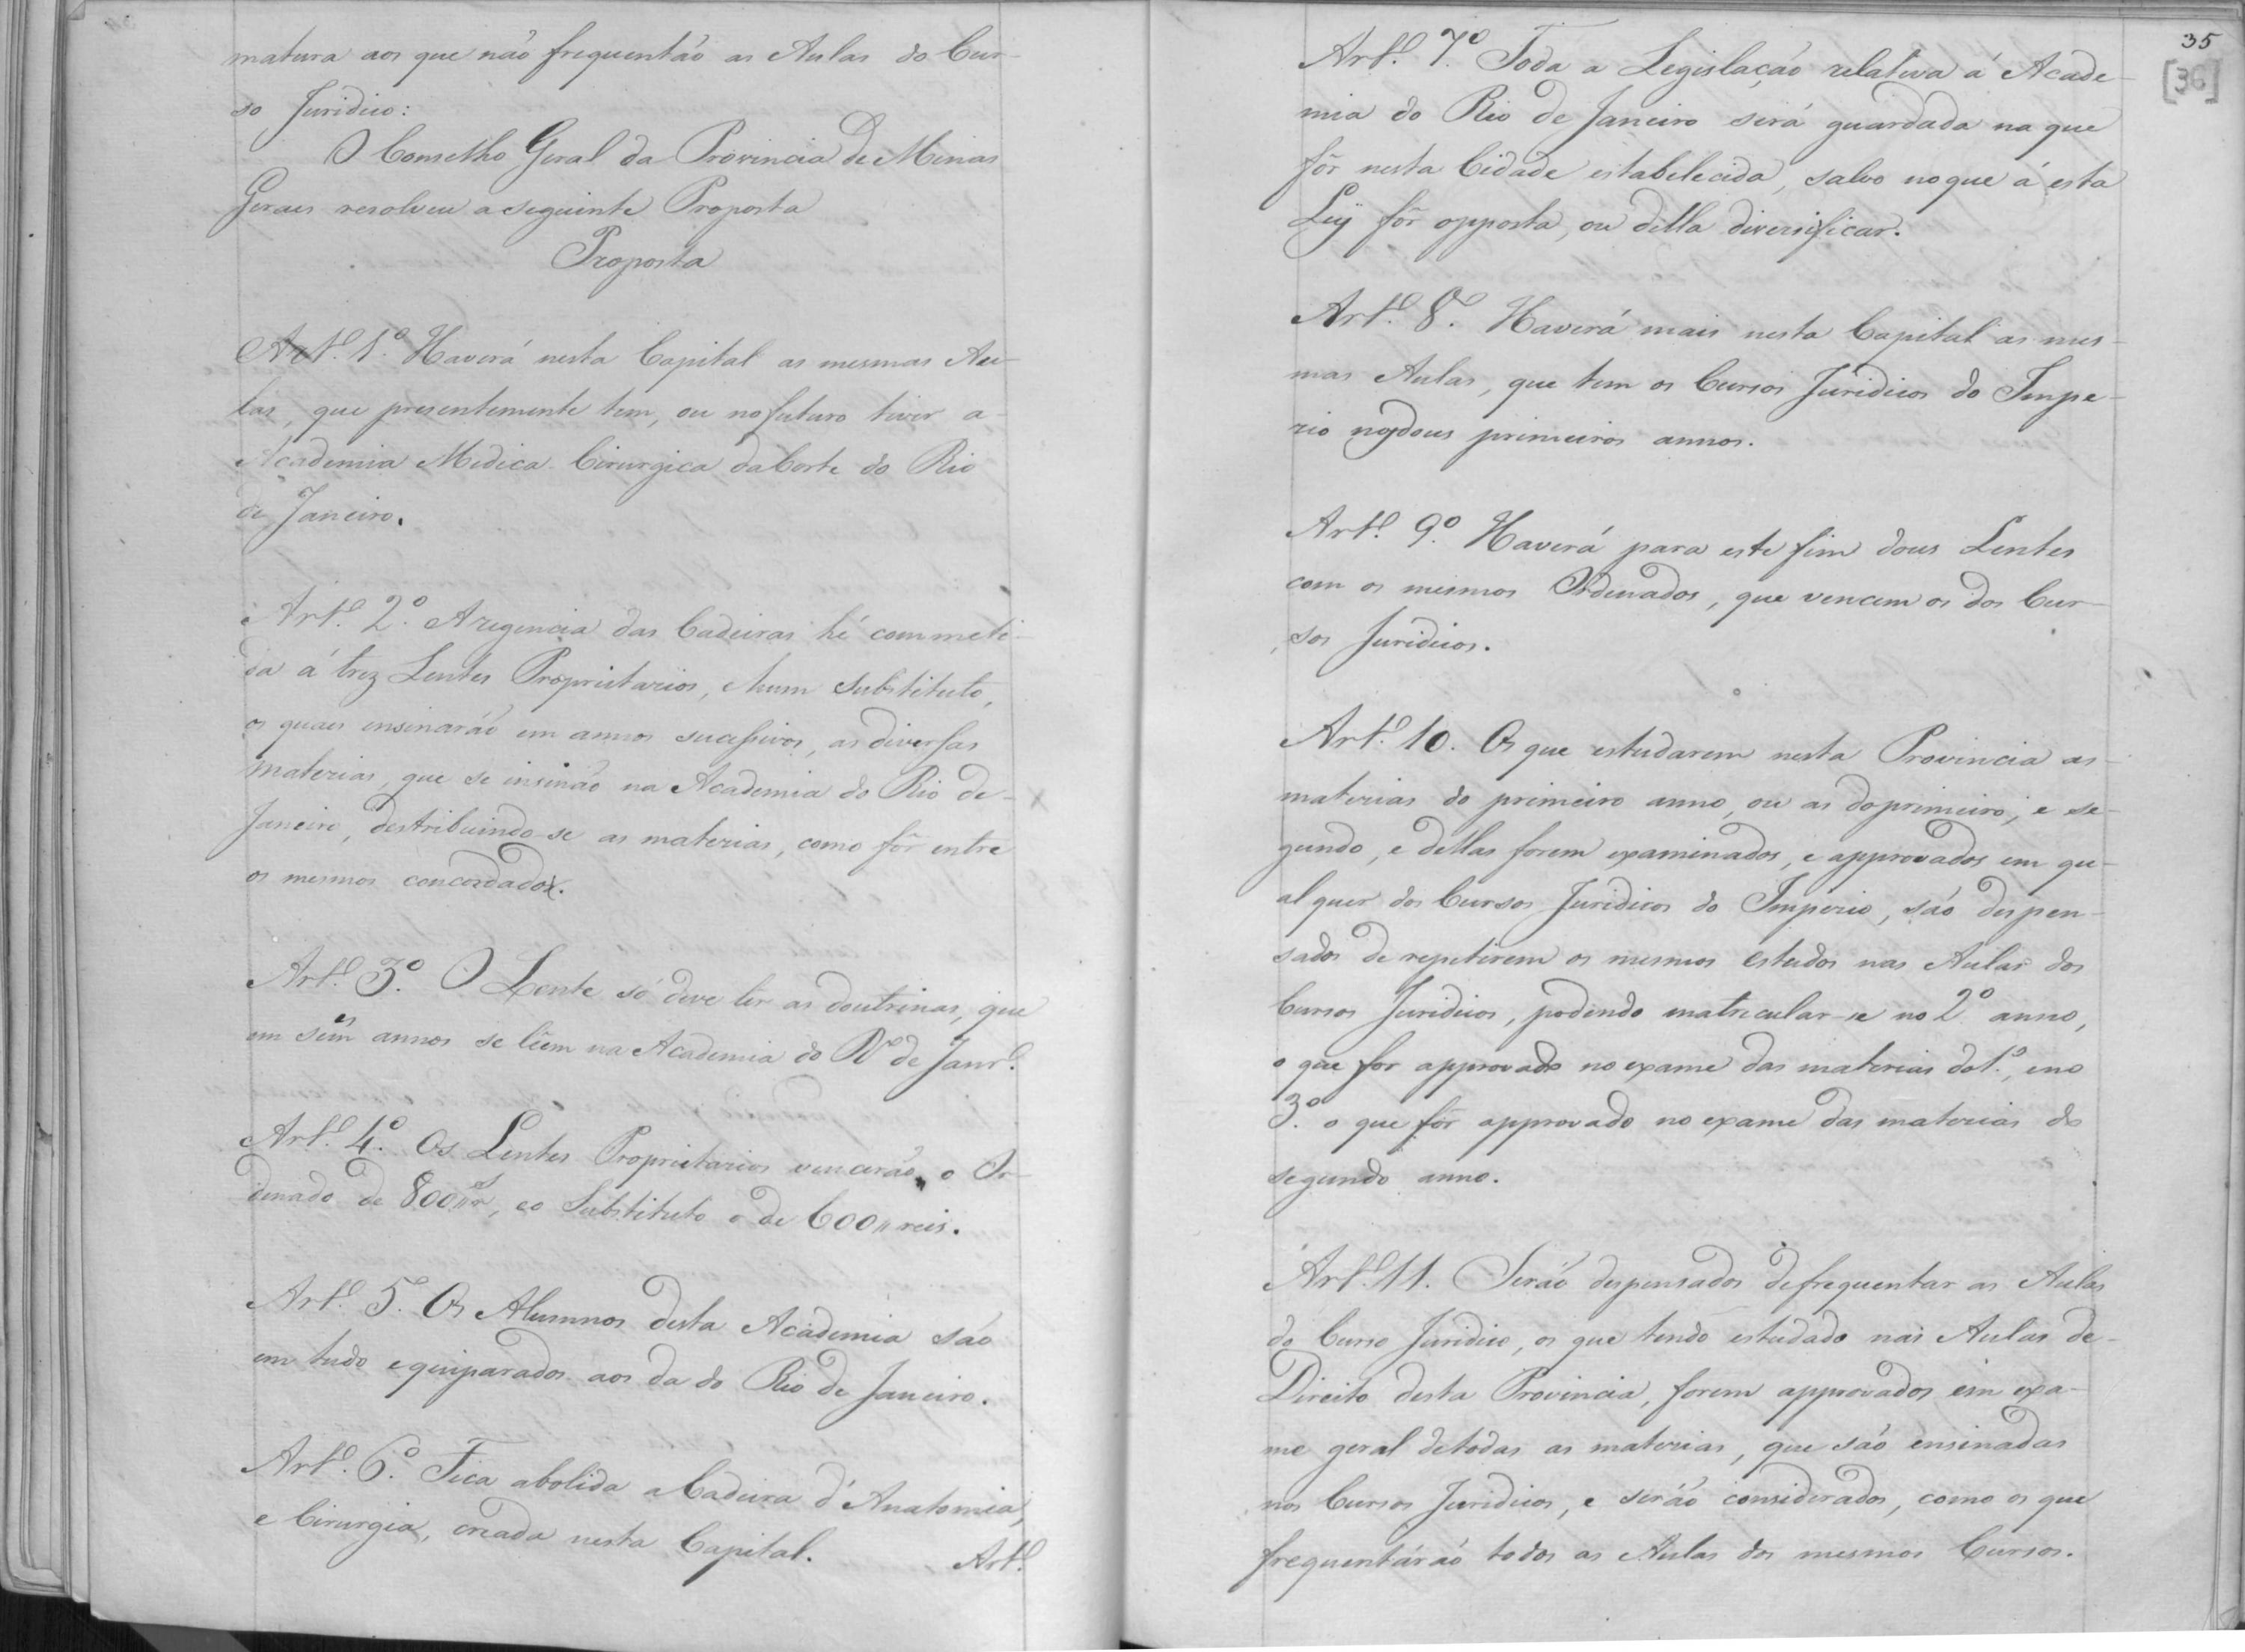 matura aos que não frequentão as Aulas do Cur-
so Juridico:
O Conselho Geral da Provincia de Minas
Geraes resolveu a seguinte Proposta
Proposta
Artº. 1º. Haverá nesta Capital as mesmas Au-
las, que presentemente tem, ou no futuro tiver a
Academia Medica-Cirurgica da Corte do Rio
de Janeiro.
Artº. 2º. A regencia das Cadeiras hé commeti-
da á trez Lentes Proprietarios, e hum Substituto,
os quaes ensinaráõ em annos sucessivos, as diversas
materias, que se insinão na Academia do Rio de-
Janeiro, destribuindo-se as materias, como fôr entre
os mesmos concordado.
Artº. 3º. O Lente só deve lêr as doutrinas, que
em seus annos se lêem na Academia do Rº de Janrº.
Artº. 4º. Os Lentes Proprietarios vencerão o Or-
denado de 800//rs, e o Substituto o de 600//reis.
Artº. 5º. Os Alumnos desta Academia são
em tudo equiparados aos da do Rio de Janeiro.
Artº. 6º. Fica abolida a Cadeira d'Anatomia,
e Cirurgia, creada nesta Capital.
Artº.
35
[36]
Artº. 7º. Toda a Legislação relativa á Acade-
mia do Rio de Janeiro será guardada na que
fôr nesta Cidade estabelecida, salvo no que á esta
Ley fôr opposta, ou della diversificar.
Artº. 8º. Haverá mais nesta Capital as mes-
mas Aulas, que tem os Cursos Juridicos do Impe-
rio nos dous primeiros annos.
Artº. 9º. Haverá para este fim dous Lentes
com os mesmos Ordenados, que vencem os dos Cur-
sos Juridicos.
Artº. 10. Os que estudarem nesta Provincia as
materias do primeiro anno, ou as do primeiro, e se-
gundo, e dellas forem examinados, e approvados em qu-
al quer dos Cursos Juridicos do Imperio, são despen-
sados de repetirem os mesmos estudos nas Aulas dos
Cursos Juridicos, podendo matricular-se no 2º anno,
o que for approvado no exame das materias do 1º., e no
3º. o que fôr approvado no exame das materias do
segundo anno.
Artº. 11. Serão despensados de frequentar as Aulas
do Curso Juridico, os que tendo estudado nas Aulas de-
Direito desta Provincia, forem approvados em exa-
me geral de todas as materias, que são ensinadas
nos Cursos Juridicos, e serão considerados, como os que
frequentáráõ todos as Aulas dos mesmos Cursos.